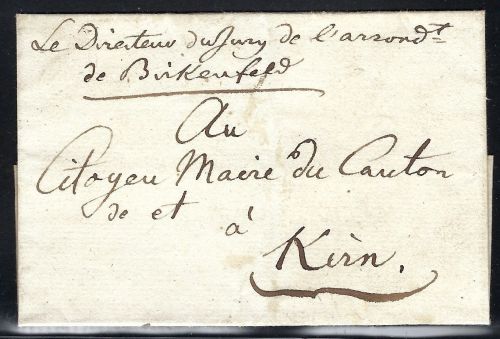 Le Directeur du Jury de l'arrond.t
de Birkenfeld
Au
Citoyen Maire du Canton
de et à
Kirn.